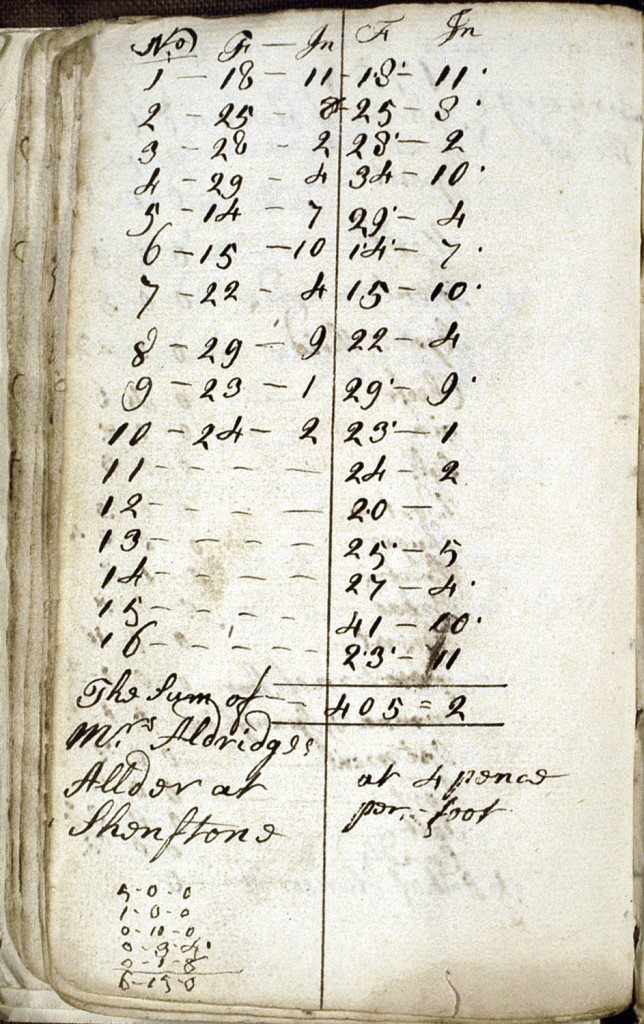 No F — In F In
1 — 18 — 11 — 18 — 11
2 — 25 — 8 25 — 8
3 — 28 — 2 28 — 2
4 — 29 — 4 34 — 10
5 — 14 — 7 29 — 4
6 — 15 — 10 14 — 7
7 — 22 — 4 15 — 10
8 — 29 — 9 22 — 4
9 — 23 — 1 29 — 9
10 — 24 — 2 23 — 1
11 — — — — 24 — 2
12 — — — — 20 —
13 — — — — 25 — 5
14 — — — — 27 — 4
15 — — — — 41 — 10
16 — — — — — 23 — 11
The Sum of — 405 = 2
Mrs Aldridges
Allder at at 4 pence
Shenstone per foot
5-0-0
1-0-0
0-10-0
0-3-4
0-1-8
6-15-0